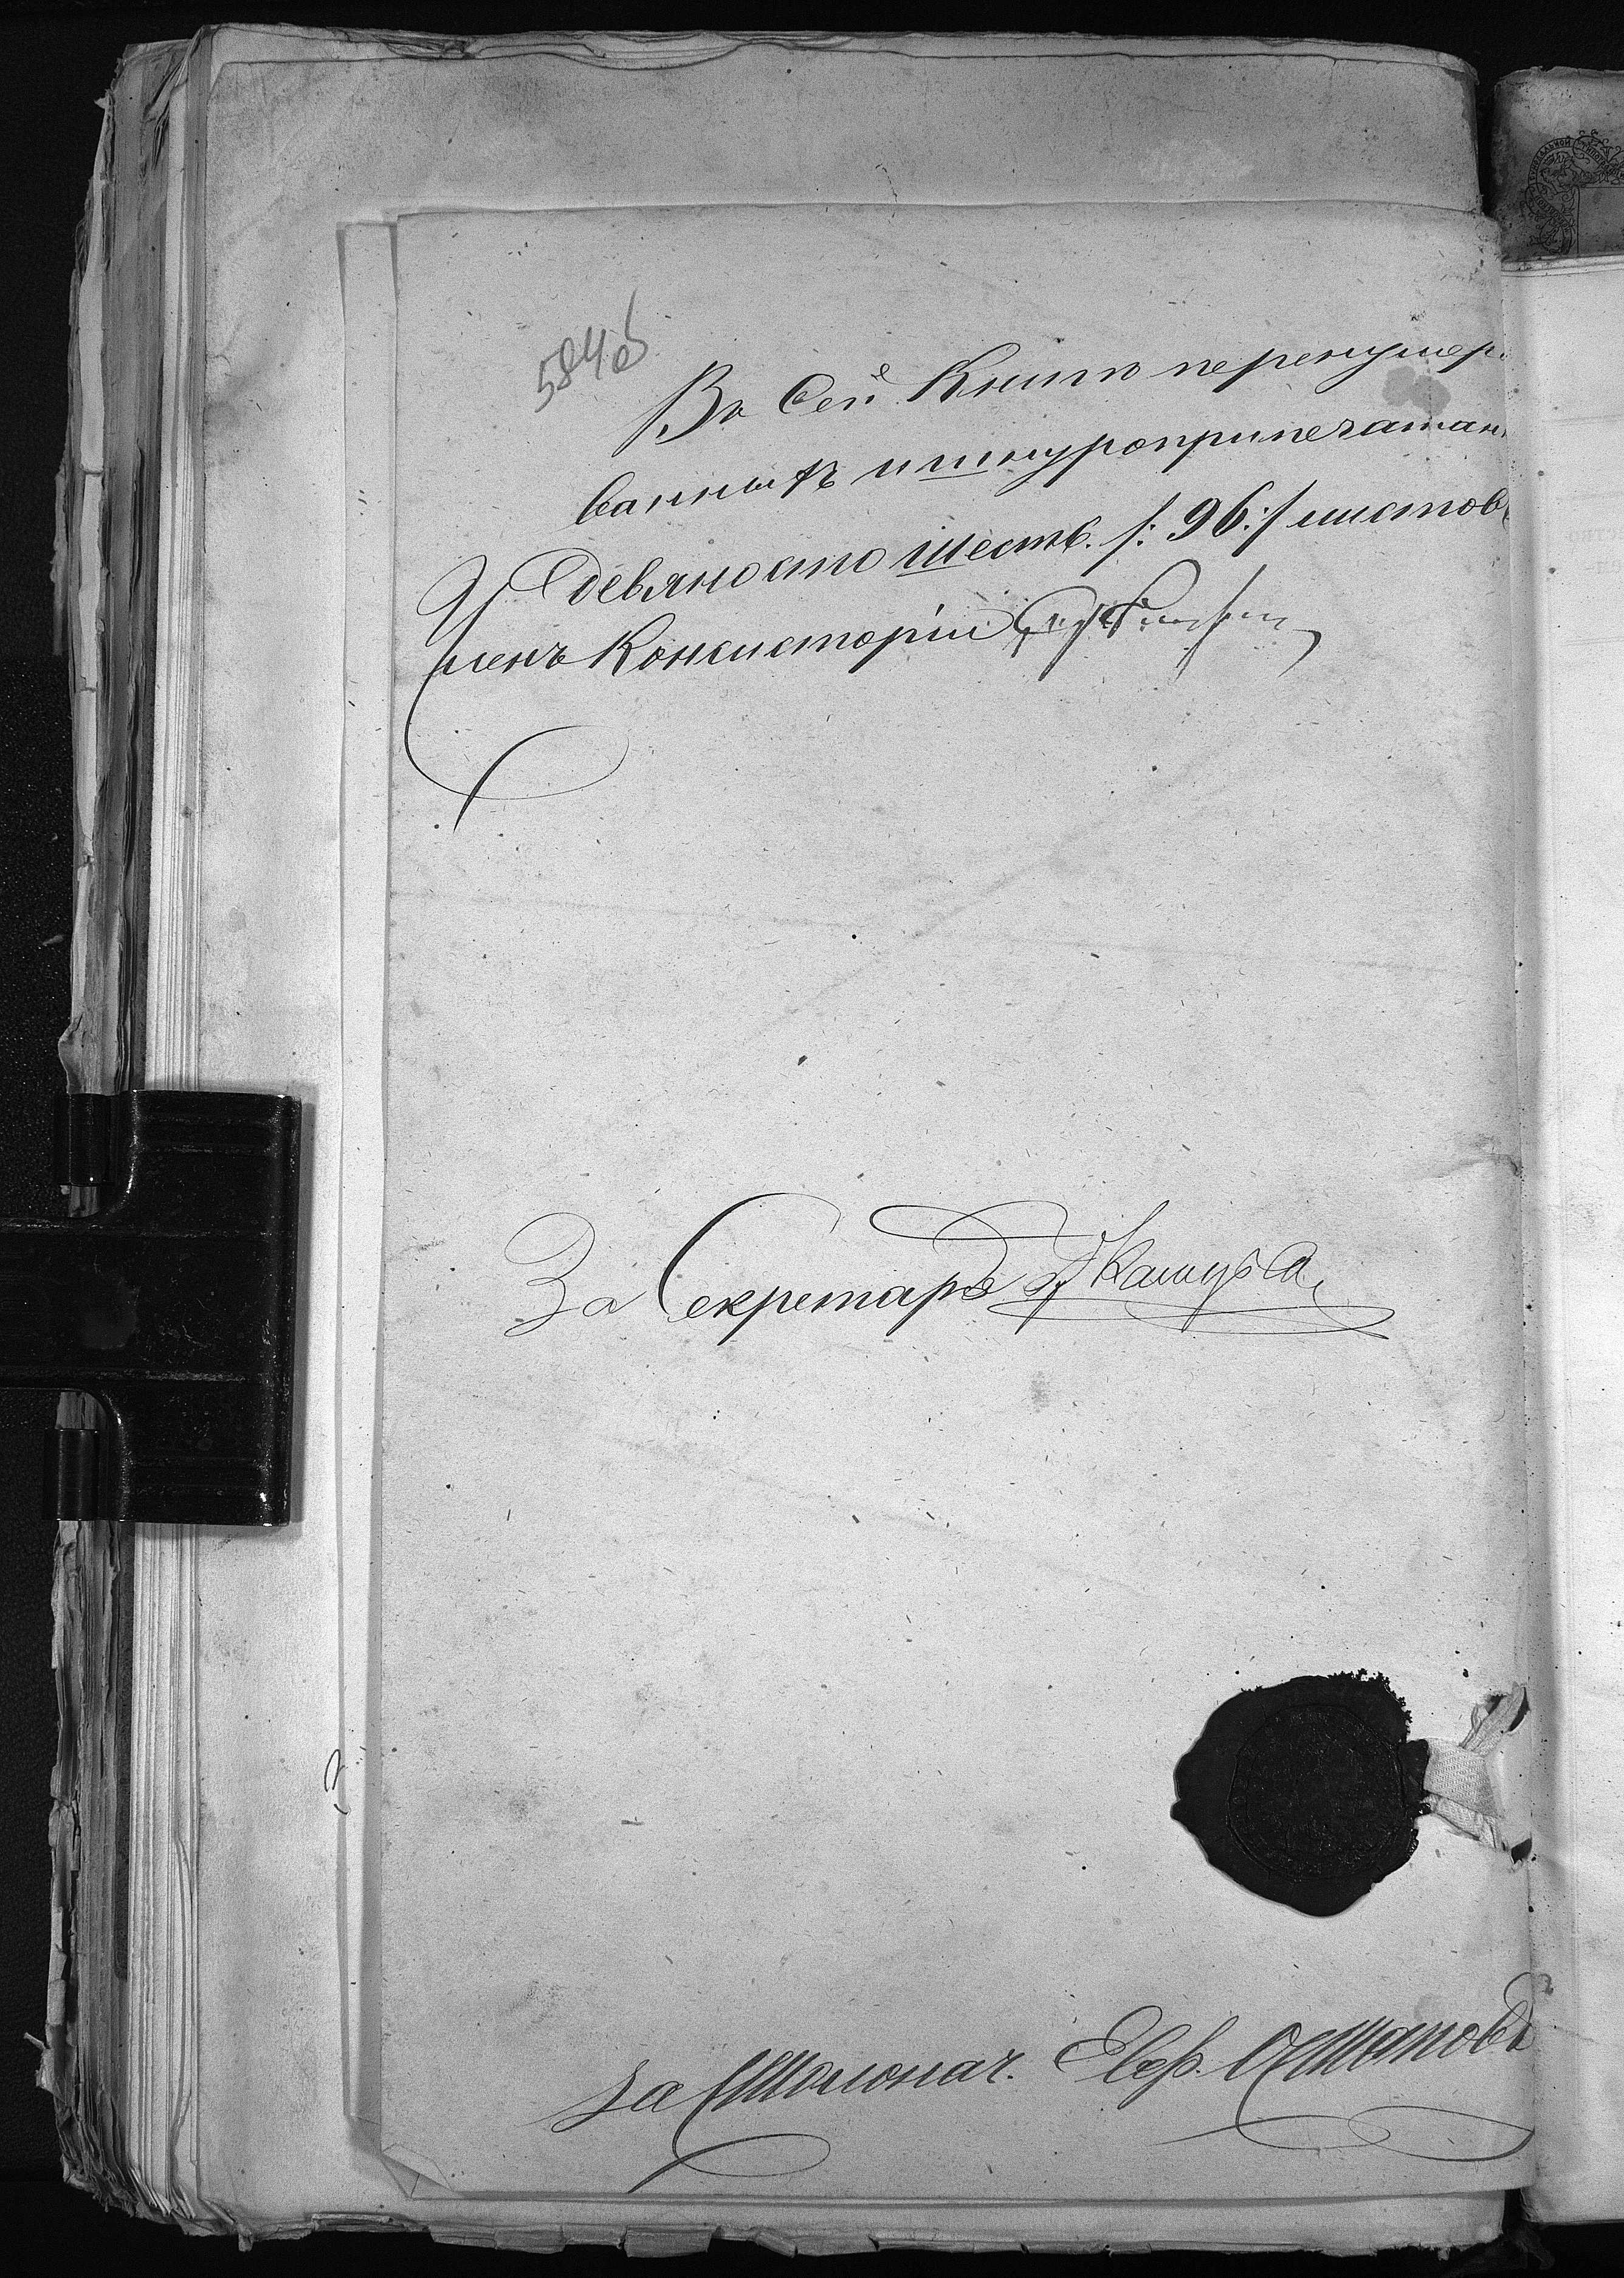 584об
Въ Сей Книгѣ перенумеро
ванныхъ и шнуроприпечатан
девяносто шесть /: 96 :/ листовъ
Членъ Консисторіи
За Секретаря
За Столонач. Евф. Остаповъ